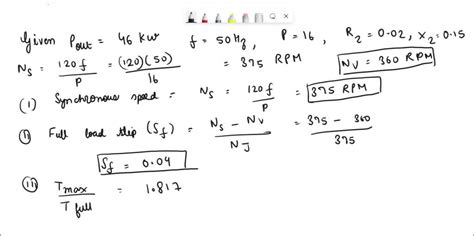 Given Pout = 46 kW f = 50 Hz, P = 16, R2 = 0.02, X2 = 0.15
Ns = 120f / P = (120)(50) / 16 = 375 RPM Nv = 360 RPM
(i) Synchronous speed = Ns = 120f / P = 375 RPM
(ii) Full load slip (Sf) = Ns - Nv / NJ = 375 - 360 / 375
Sf = 0.04
(iii) Tmax / Tfull = 1.817